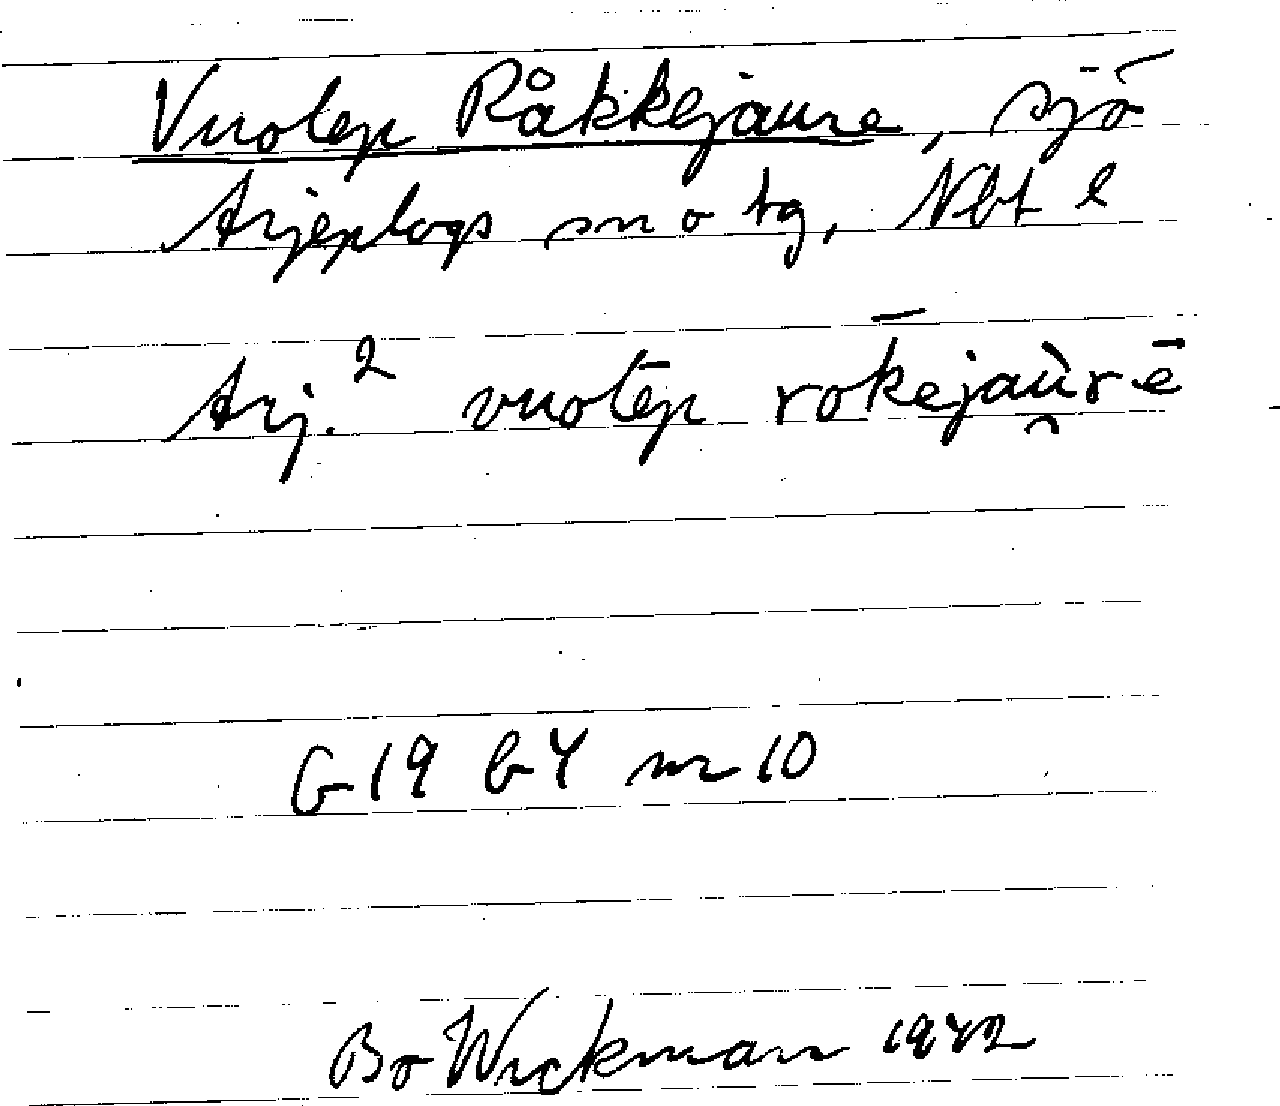 Vuolep Råkkejaure, sjö
Arjeplogs sn o tg, Nbt l
Arj.² vuolēp rok̄ejaù̯rē
G19 b4 nr 10
Bo Wickman 1942